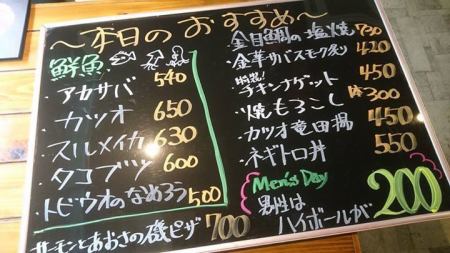 ～本日のおすすめ～
鮮魚
・アカサバ 540
・カツオ 650
・スルメイカ 630
・タコブツ 600
・トビウオのなめろう 500
サーモンとあおさの磯ピザ 700
・金目鯛の塩焼 730
・金華サバスモーク炙り 420
・特製!チキンナゲット 450
・焼もろこし 300
・カツオ竜田揚 450
・ネギトロ丼 550
Men's Day
男性は
ハイボールが 200